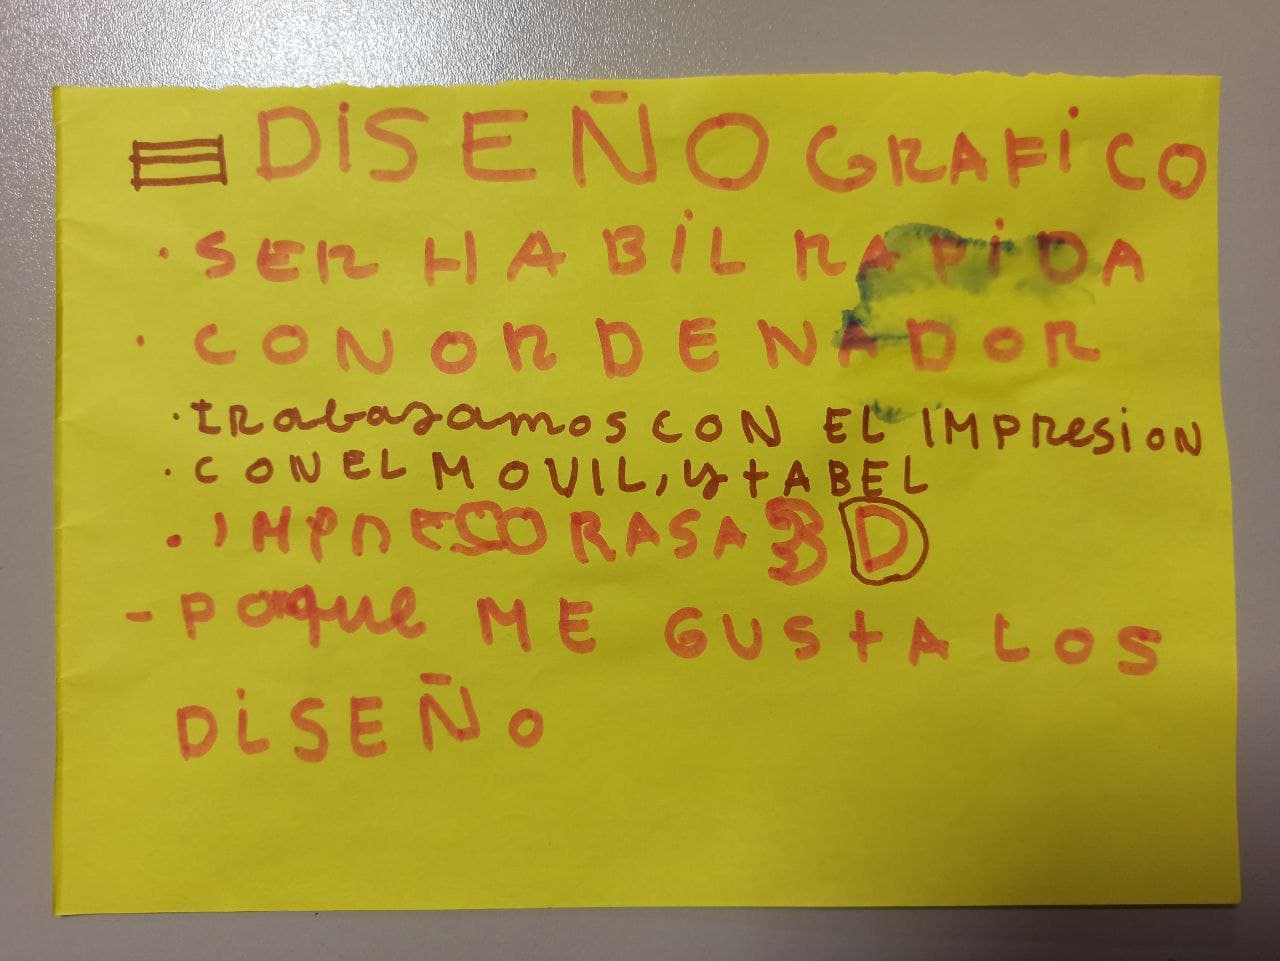 DISEÑO GRAFICO
· SER HABIL RAPIDA
· CON ORDENADOR
· trabajamos CON EL IMPRESION
· CON EL MOVIL, y tABEL
· IMPRESORASA 3D
- Poque ME GUSTA LOS
DISEÑO